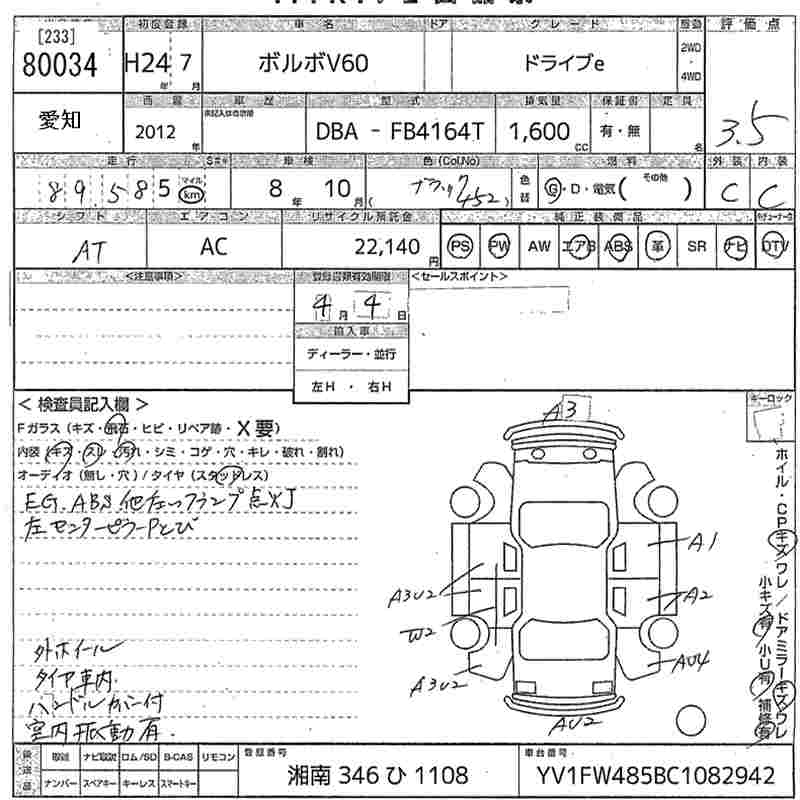 [233]
80034
初度登録 車名 ドア グレード 駆動 評価点
H24年 7月 ボルボV60 ドライブe 2WD・4WD
愛知
西暦 車歴 型式 排気量 保証書 定員
2012年 DBA - FB4164T 1,600CC 有・無 名 3.5
走行 車検 色(Col,No) 燃料 外装 内装
89,585 マイル km 8年 10月 (ブラック 452) 色替 G・D・電気( その他 ) C C
シフト エアコン リサイクル預託金 純正装備品
AT AC 22,140円 PS PW AW エアB ABS 革 SR ナビ DTV
<注意事項> 登録書類有効期限 <セールスポイント>
4月 4日
輸入車
ディーラー・並行
左H ・ 右H
キーロック
< 検査員記入欄 >
Fガラス(キズ・飛石・ヒビ・リペア跡・X要)
内装(キズ・スレ・汚れ・シミ・コゲ・穴・キレ・破れ・割れ)
オーディオ(無し・穴)/タイヤ(スタッドレス)
EG.ABS他左いフランプ点灯
左センターピラーPとび
外ホイール
タイヤ車内
ハンドルカバー付
室内振動有.
A3
A1
A3U2
A2
W2
A3U2
AU4
AU2
ホイル・CPキズワレ/ドアミラーキズワレ
小キズ有 小U有 補修有
後送品 取説 ナビ取説 ロム/SD B-CAS リモコン 登録番号 車台番号
ナンバー スペアキー キーレス スマートキー 湘南 346 ひ 1108 YV1FW485BC1082942